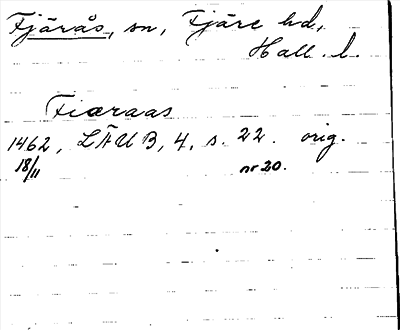 Fjärås, sn, Fjäre hd,
Hall. l.
Fiæraas
1462, LÄUB, 4, s. 22. orig.
18/11 nr 20.